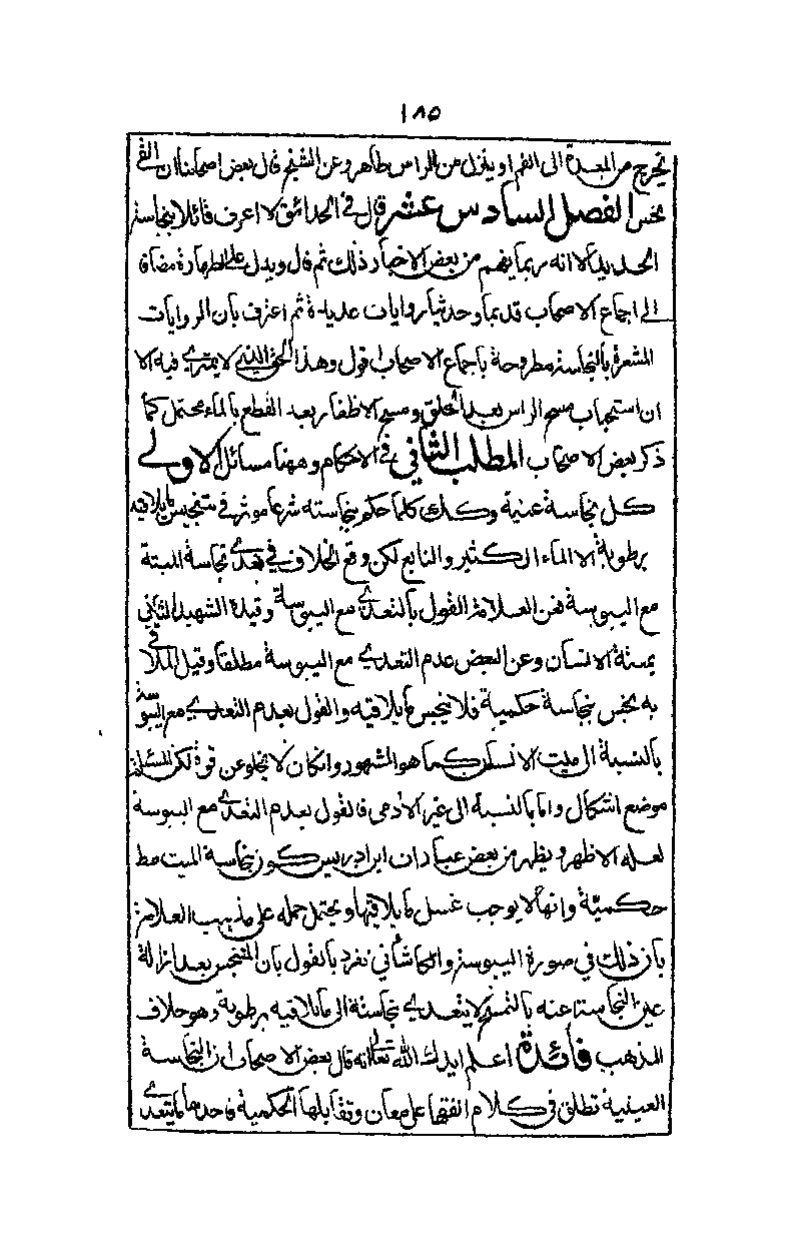 ١٨٥
تخرج من المعدة الى الفم او ينزل من الراس طاهر وعن الشيخ قال بعض اصحابنا ان القى
نجس الفصل السادس عشر قال في الحدائق لا اعرف قائلا بنجاسة
الحديد الا انه ربما يفهم من بعض الاخبار ذلك ثم قال ويدل على الطهارة مضافا
الى اجماع الاصحاب قديما وحديثا روايات عديدة ثم اعترف بان الروايات
المشعرة بالنجاسة مطروحة باجماع الاصحاب اقول وهذا الحق الذي لا يمترى فيه الا
ان استحباب مسح الراس بعد الحلق ومسح الاظفار بعد القطع بالماء محتمل كما
ذكر بعض الاصحاب المطلب الثاني في الاحكام وههنا مسائل الاولى
كل نجاسة عينية وكذلك كلما حكم بنجاسته شرعا موثر في تنجيس ما يلاقيه
برطوبة الا الماء الكثير والنابع لكن وقع الخلاف في تعدى نجاسة الميتة
مع اليبوسة فعن العلامة القول بالتعدى مع اليبوسة وقيده الشهيد الثاني
بميتة الانسان وعن البعض عدم التعدى مع اليبوسة مطلقا وقيل الملاقى
به نجس بنجاسة حكمية فلا ينجس ما يلاقيه والقول بعدم التعدى مع اليبوسة
بالنسبة الى ميت الانسان كما هو المشهور وان كان لا يخلو عن قوة لكن المسئلة
موضع اشكال واما بالنسبة الى غير الادمى فالقول بعدم التعدى مع اليبوسة
لعله الاظهر ويظهر من بعض عبارات ابن ادريس كون نجاسة الميت مط
حكمية وانها لا يوجب غسل ما يلاقيها ويحتمل حمله على مذهب العلامة
بان ذلك في صورة اليبوسة والكاشاني تفرد بالقول بان المتنجس بعد ازالة
عين النجاسة عنه بالتمسح لا يتعدى نجاسته الى ما يلاقيه برطوبة وهو خلاف
المذهب فائدة اعلم ايدك الله تعالى انه قال بعض الاصحاب ان النجاسة
العينية تطلق في كلام الفقهاء على معان وتقابلها الحكمية فاحدها ما يتعدى